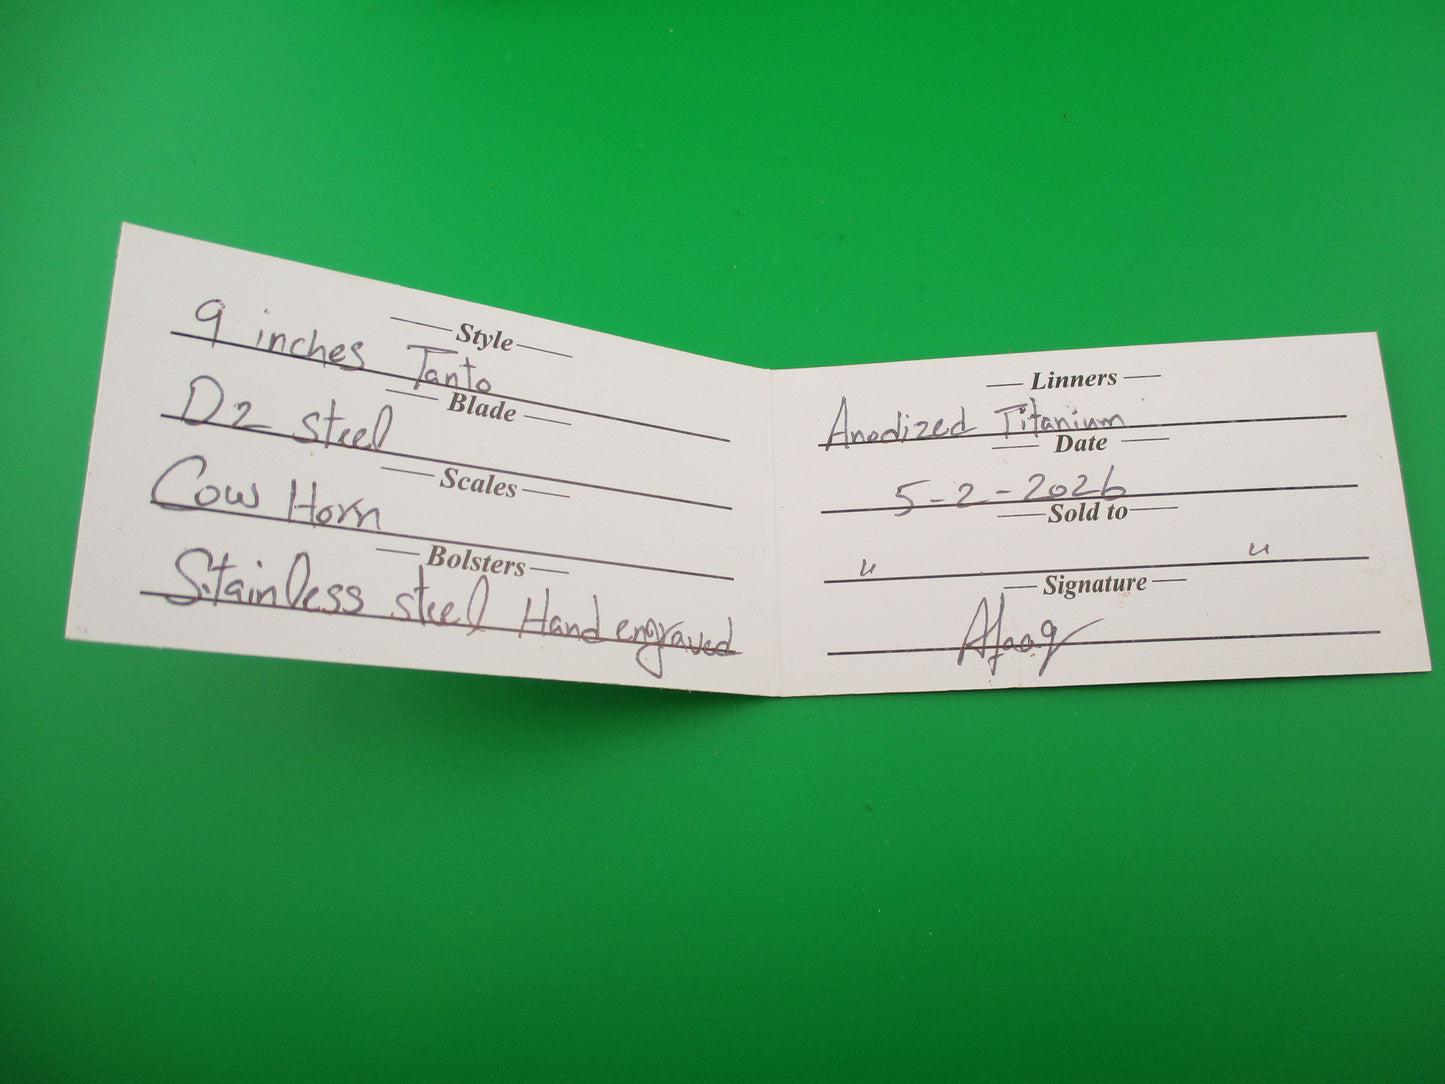 Style
9 inches Tanto
Blade
D2 steel
Scales
Cow Horn
Bolsters
Stainless steel Hand engraved
Linners
Anodized Titanium
Date
5-2-2026
Sold to
" "
Signature
Afaaq